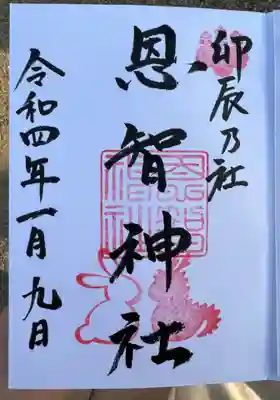 卯辰乃社
恩智神社
令和四年一月九日